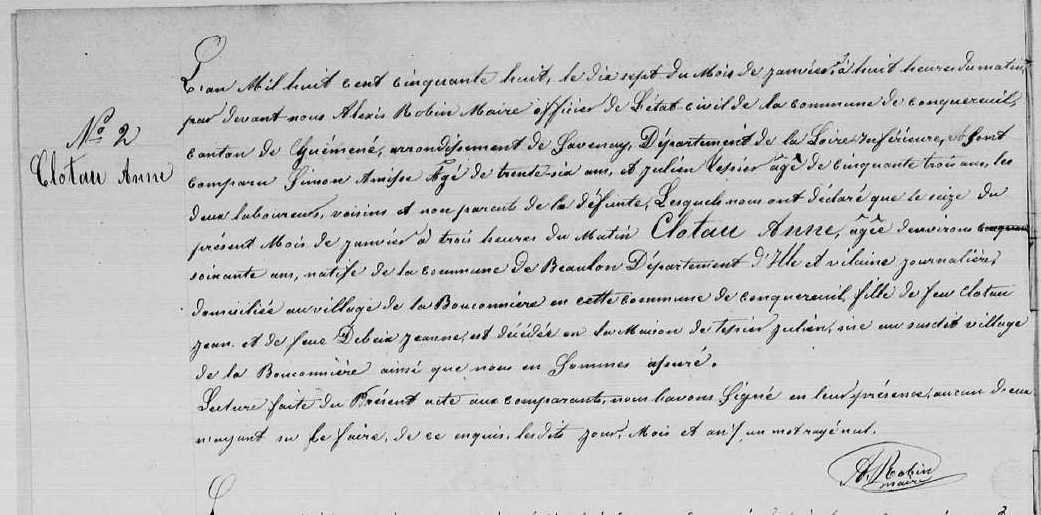 L'an Mil huit cent cinquante huit, le dix sept du Mois de janvier, à huit heures du matin,
par devant nous Alexis Robin Maire officier de L'état civil de la commune de conquereuil,
N° 2
canton de Guémené, arrondissement de Savenay, Département de la Loire Inférieure, et sont
Clotau Anne
comparu Simon Amisse Agé de trente six ans, et julien tessier âgé de cinquante trois ans, les
deux laboureurs, voisins et non parents de la défunte, Lesquels nous ont déclaré que le seize du
présent Mois de janvier à trois heures du Matin Clotau Anne, âgée denvirons
soixante ans, natife de la commune de Beaulon Département d'Ille et vilaine journalière,
domiciliée au village de la Bouconnière en cette commune de conquereuil, fille de feu Clotau
jean et de feue Debeix jeanne, est décédée en la Maison de tessier julien, sise au susdit village
de la Bouconnière ainsi que nous en Sommes assuré.
Lecture faite du Présent acte aux comparants, nous l'avons Signé en leur présence, aucun d'eux
n'ayant su le faire, de ce enquis, lesdits jour, Mois et an / un mot rayé nul.
A. Robin
maire